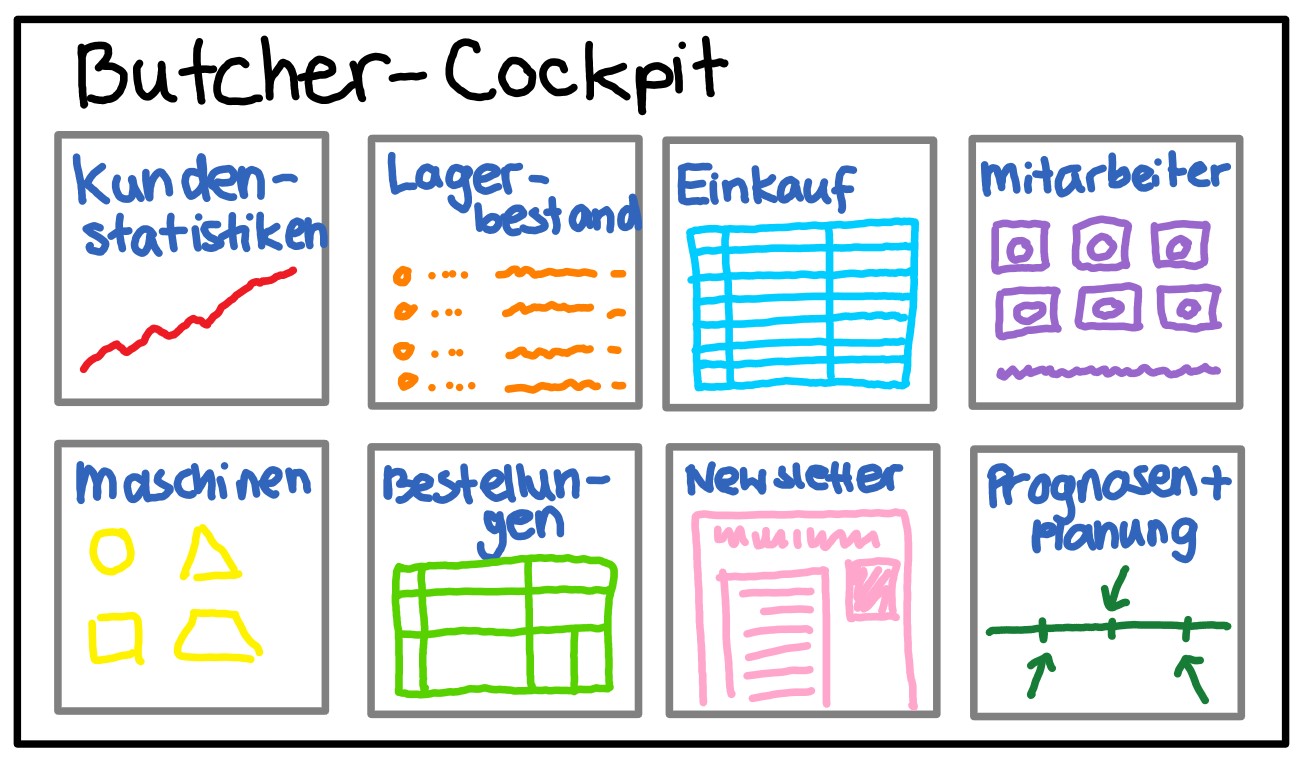 Butcher-Cockpit
Kunden-
statistiken
Lager-
bestand
Einkauf
Mitarbeiter
Maschinen
Bestellun-
gen
Newsletter
Prognosen+
Planung